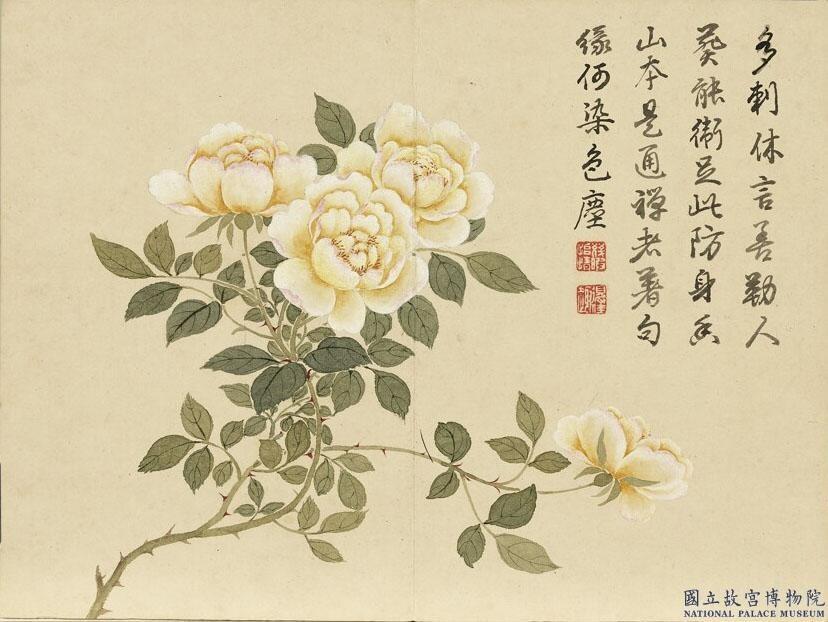 多刺休言善勒人
葵能衛足此防身香
山本是通禪者著句
緣何染色塵
國立故宮博物院
NATIONAL PALACE MUSEUM